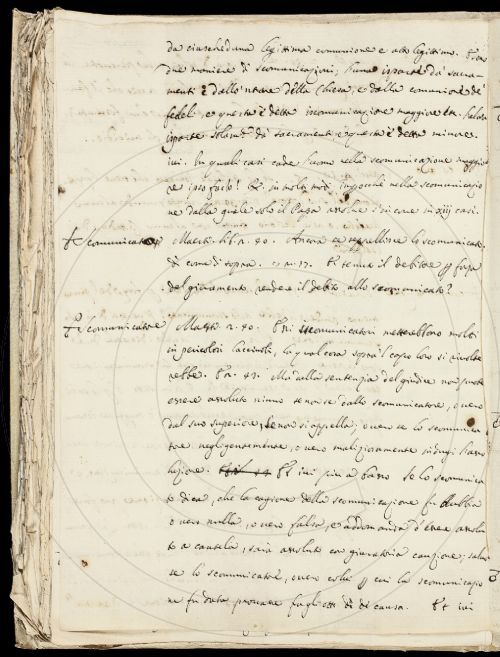 da ciascheduna legittima comunione e atto legittimo. E son
due maniere di scomunicazioni, l'una isparte da' sacra-
menti e dallo 'ntrare della Chiesa, e dalla comunione de'
fedeli, e questa è detta iscomunicazione maggiore
isparte solam.te da' sacramenti, e questa è detta minore.
ivi. In quali casi cade l'uomo nella scomunicazione maggio-
re ipso facto? in molti modi, imperocchè nella scomunicazio-
ne dalla quale solo il Papa assolve s'incorre in xiij casi.
Scomunicato Maestr. lib. 2. 40. Ancora lo scomunicato,
di come di sopra. 2. 17. tenuto il debitore per forza
del giuramento, rendere il debito allo scomunicato?
Scomunicatore Maestr. 2. 40. iscomunicatori metterebbono molti
in pericolosi lacciuoli, la qual cosa sopra 'l capo loro si rivolte-
rebbe. 43. Ma dalla sentenzia del giudice non puote
essere assoluto niuno se non se dallo scomunicatore, o vero
dal suo superiore, se non si appella; o vero se lo scomunica-
tore negligentemente, o vero maliziosamente
luzione. ivi più a basso Se lo scomunica-
to dica, che la cagione della scomunicazione fu dubbia
o vero nulla, o vero falsa, e addomanda d'essere assolu-
to a cautela, saria assoluto con giuratoria cauzione; salvo
se lo scomunicatore, ovvero colui per cui la scomunicazio-
ne fu data, provare di causa. Et ivi